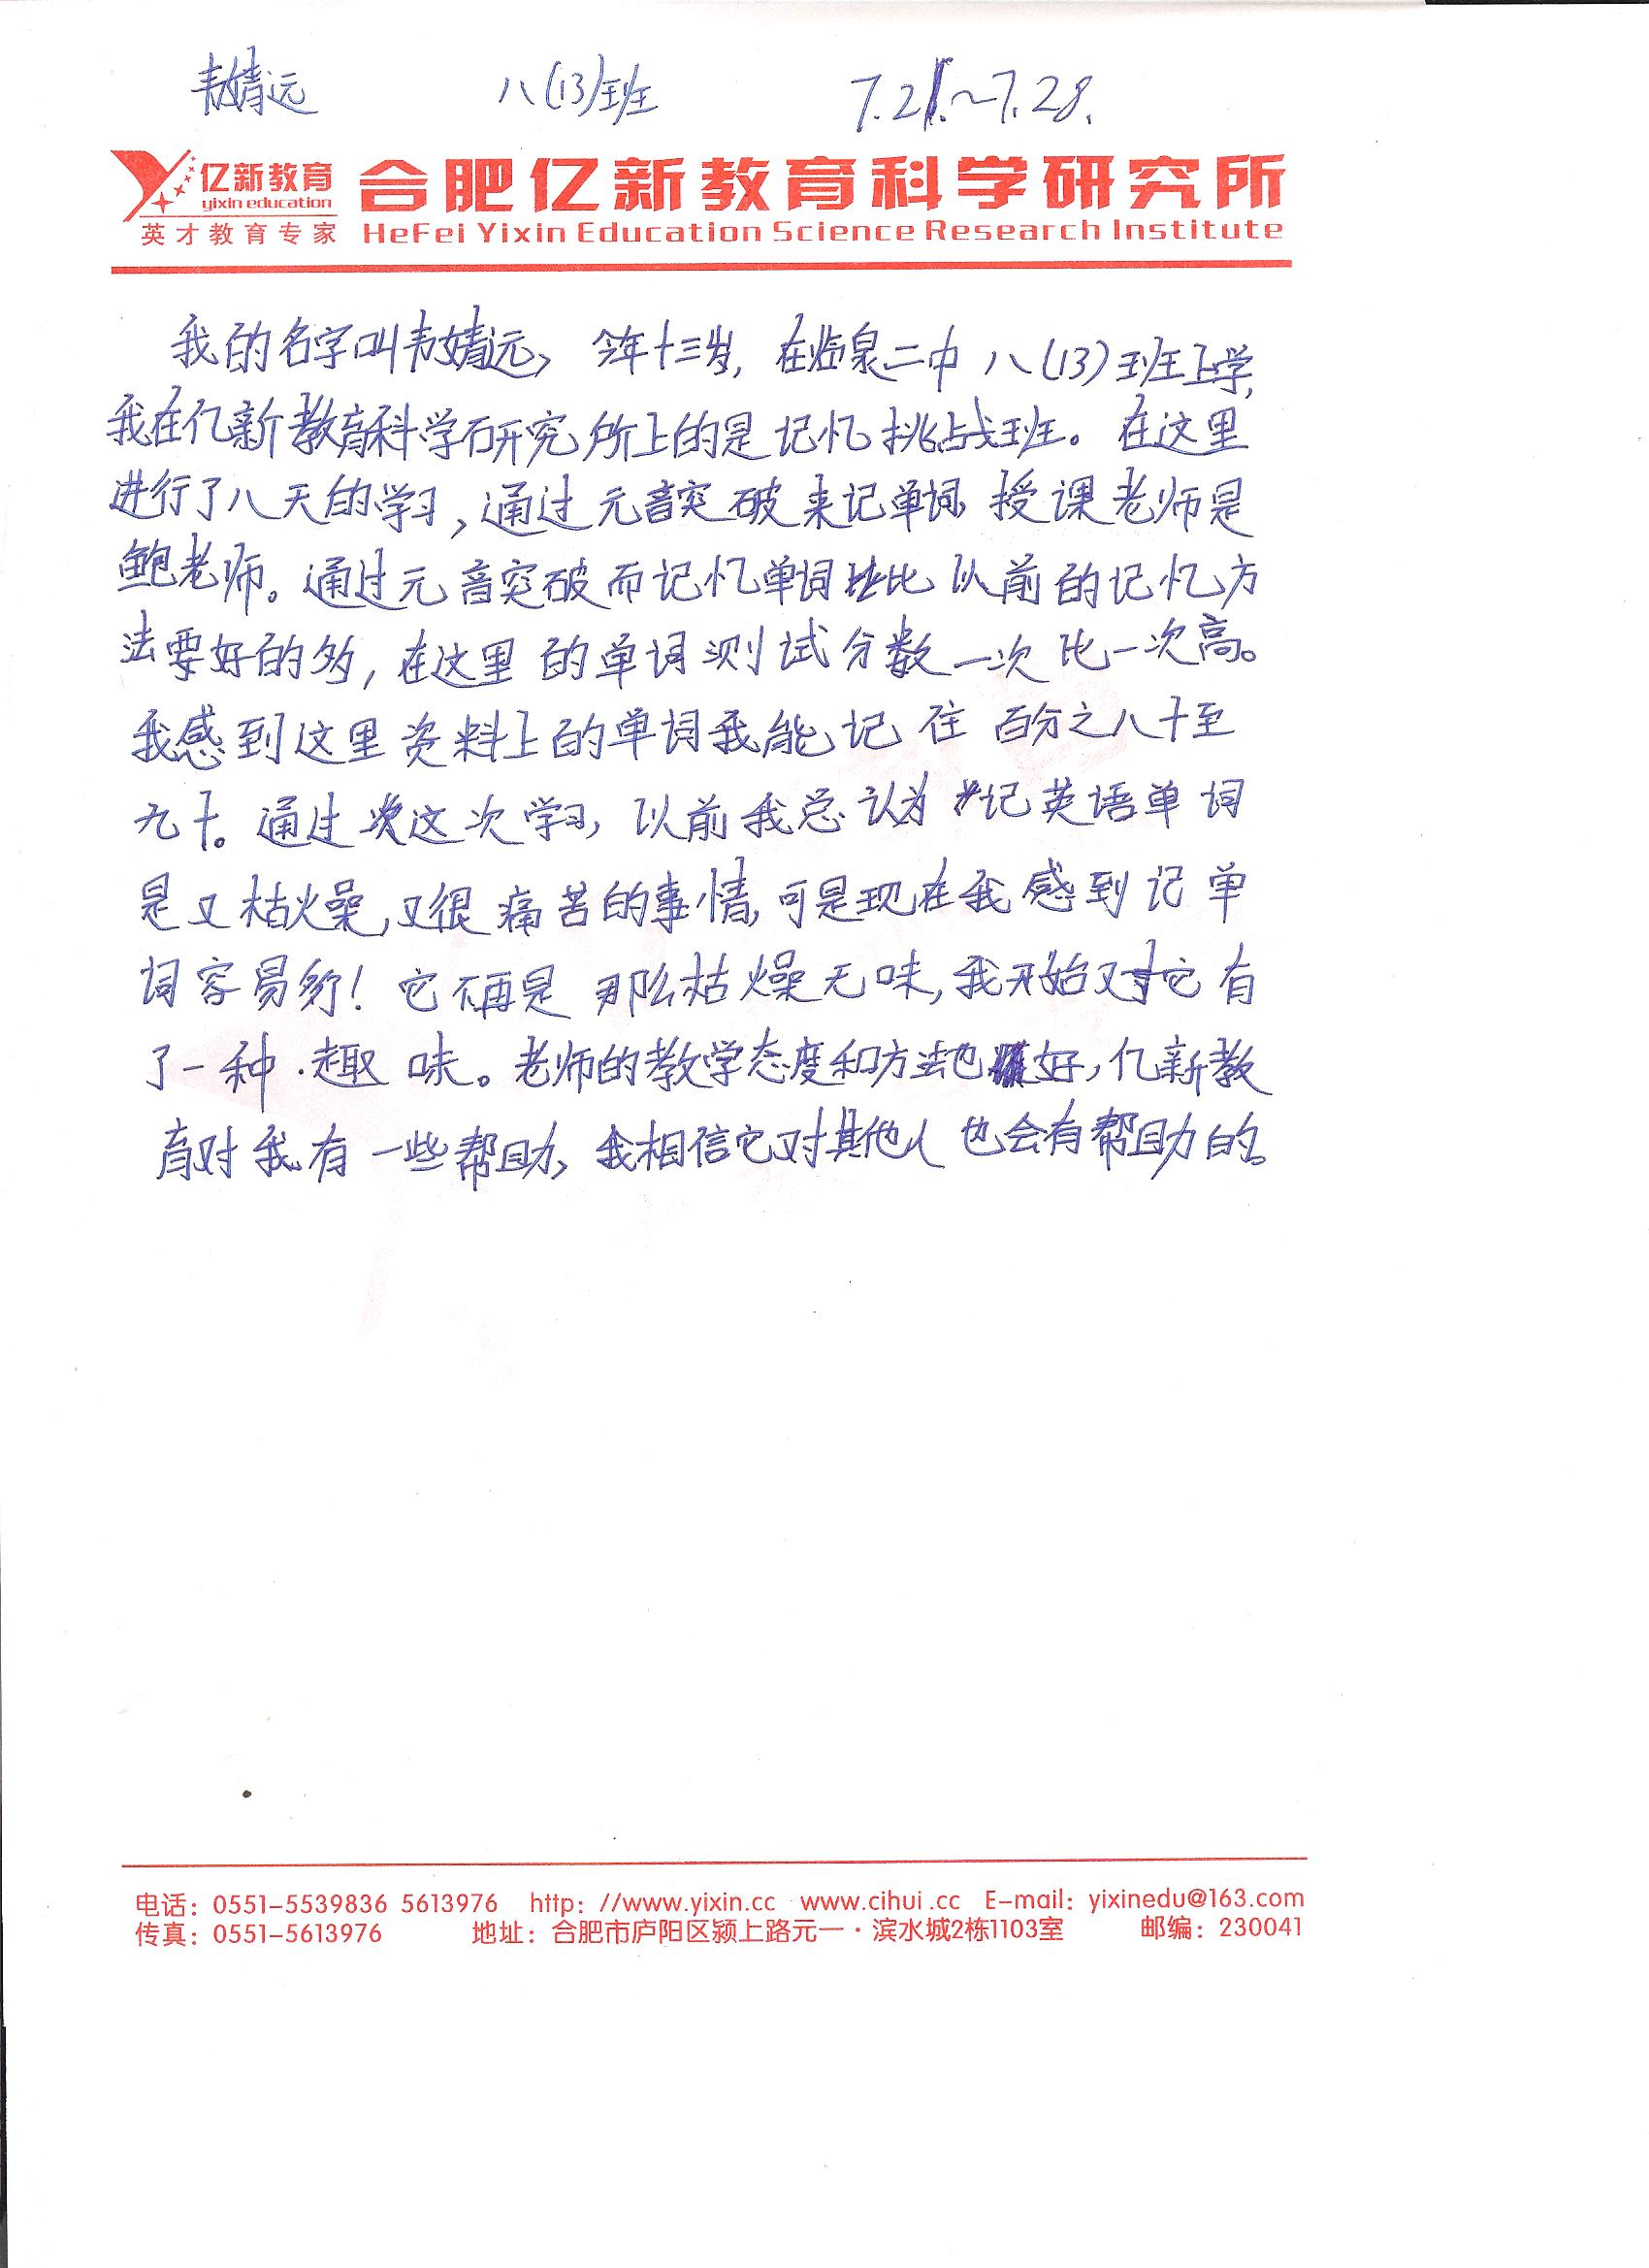 韦婧远 八(13)班 7.21.~7.28.
亿新教育
yixin education
英才教育专家
合肥亿新教育科学研究所
HeFei Yixin Education Science Research Institute
我的名字叫韦婧远，今年十三岁，在临泉二中八(13)班上学，
我在亿新教育科学研究所上的是记忆挑战班。在这里
进行了八天的学习，通过元音突破来记单词，授课老师是
鲍老师。通过元音突破而记忆单词比以前的记忆方
法要好的多，在这里的单词测试分数一次比一次高。
我感到这里资料上的单词我能记住百分之八十至
九十。通过这次学习，以前我总认为记英语单词
是又枯燥，又很痛苦的事情，可是现在我感到记单
词容易多了！它不再是那么枯燥无味，我开始对它有
了一种趣味。老师的教学态度和方法也好，亿新教
育对我有一些帮助，我相信它对其他人也会有帮助的。
电话：0551-5539836 5613976 http: //www.yixin.cc www.cihui.cc E-mail: yixinedu@163.com
传真：0551-5613976 地址：合肥市庐阳区颍上路元一·滨水城2栋1103室 邮编：230041